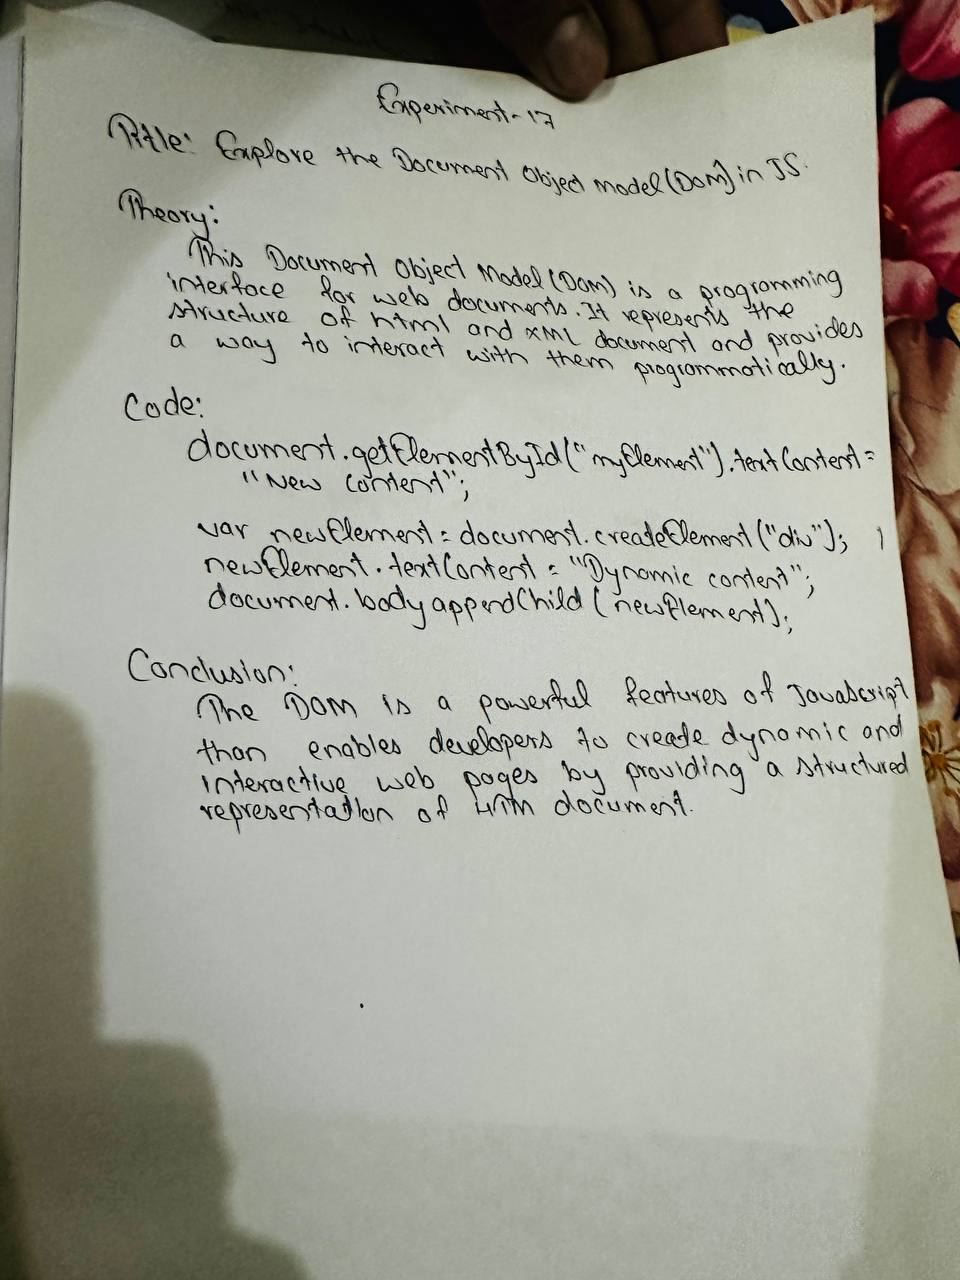 Experiment-17
Title: Explore the Document Object Model (DOM) in JS.
Theory:
This Document Object Model (DOM) is a programming
interface for web documents. It represents the
structure of html and XML document and provides
a way to interact with them programmatically.
Code:
document.getElementById("myElement").textContent =
"New content";
var newElement = document.createElement("div");
newElement.textContent = "Dynamic content";
document.body appendChild (newElement);
Conclusion:
The DOM is a powerful features of JavaScript
than enables developers to create dynamic and
interactive web pages by providing a structured
representation of document.